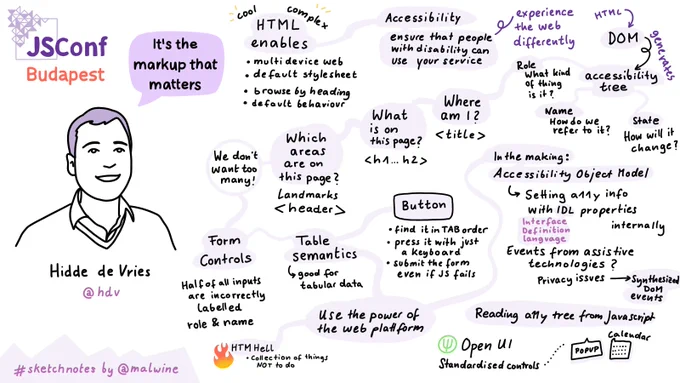 JSConf
Budapest
It's the
markup that
matters
Hidde de Vries
@hdv
#sketchnotes by @malwine
cool
complex
HTML
enables
• multi device web
• default stylesheet
• browse by heading
• default behaviour
Accessibility
ensure that people
with disability can
use your service
experience
the web
differently
HTML
DOM
generates
accessibility
tree
Role
What kind
of thing
is it?
Name
How do we
refer to it?
State
How will it
change?
Where
am I?
<title>
What
is on
this page?
<h1...h2>
Which
areas
are on
this page?
Landmarks
<header>
We don't
want too
many!
Form
Controls
Half of all inputs
are incorrectly
labelled
role & name
Table
semantics
good for
tabular data
Button
• find it in TAB order
• press it with just
a keyboard
• submit the form
even if JS fails
Use the power of
the web platform
HTM Hell
• Collection of things
NOT to do
In the making:
Accessibility Object Model
Setting a11y info
with IDL properties
Interface
Definition
language
internally
Events from assistive
technologies?
Privacy issues
Synthesized
DOM
events
Reading a11y tree from Javascript
Open UI
Standardised controls
POPUP
Calendar